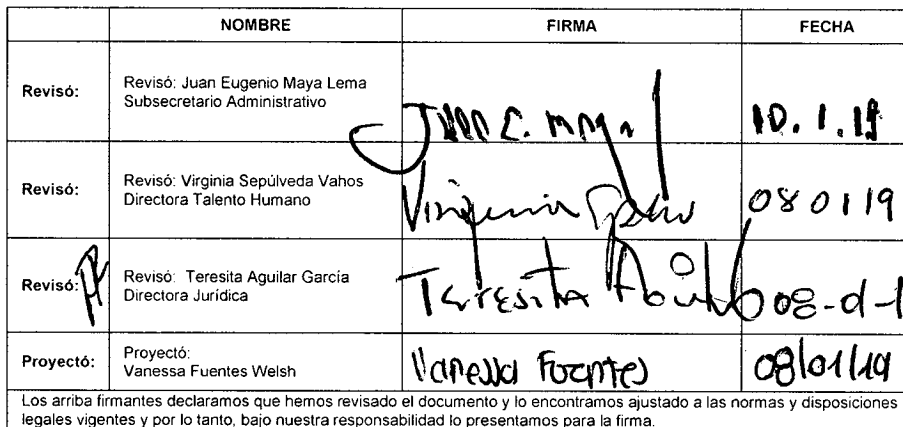 NOMBRE FIRMA FECHA
Revisó: Revisó: Juan Eugenio Maya Lema
Subsecretario Administrativo
10.1.19
Revisó: Revisó: Virginia Sepúlveda Vahos
Directora Talento Humano
Virginia 080119
Revisó: Revisó: Teresita Aguilar García
Directora Jurídica
Teresita
Proyectó: Proyectó:
Vanessa Fuentes Welsh
Vanessa Fuentes 08/01/19
Los arriba firmantes declaramos que hemos revisado el documento y lo encontramos ajustado a las normas y disposiciones
legales vigentes y por lo tanto, bajo nuestra responsabilidad lo presentamos para la firma.